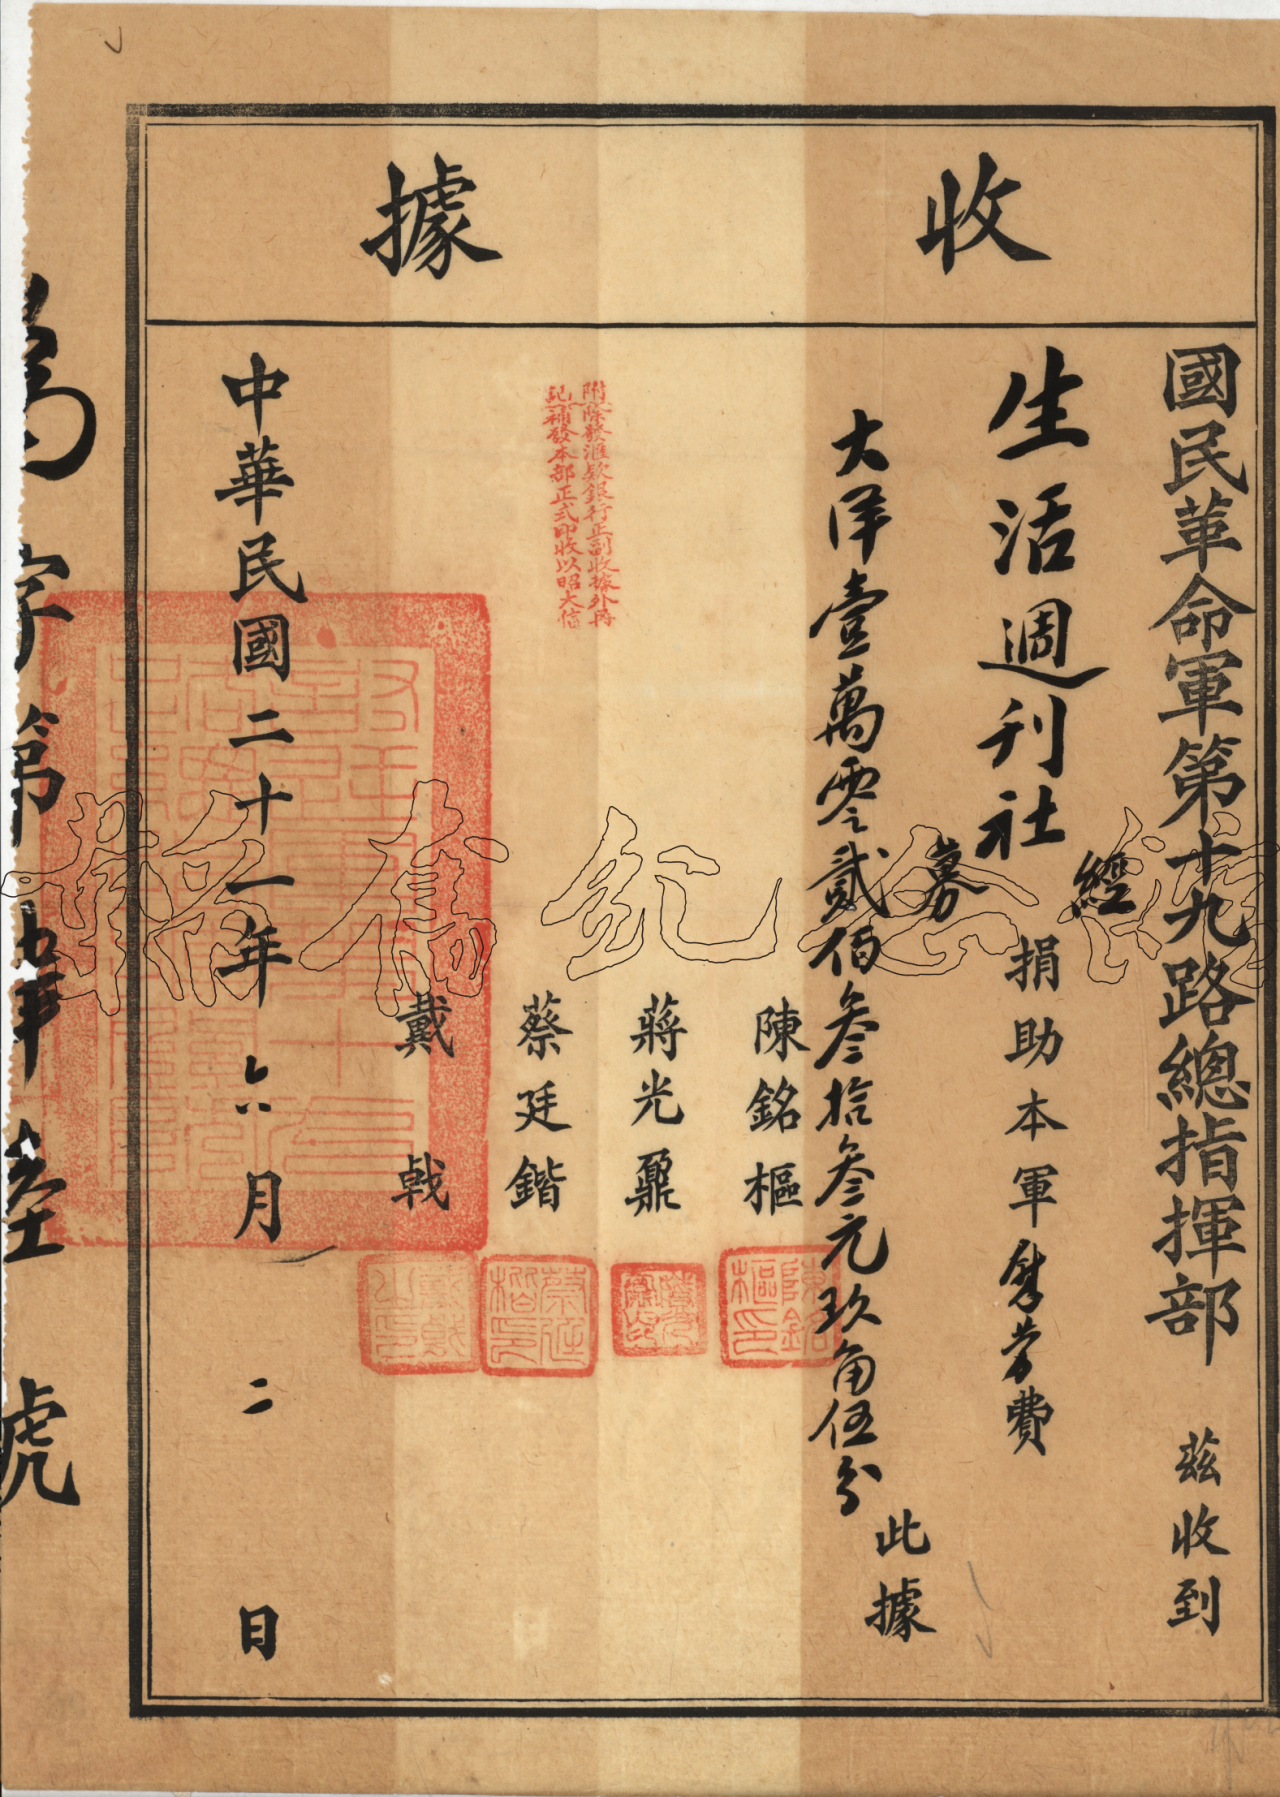 收據
國民革命軍第十九路總指揮部 茲收到
生活週刊社經募捐助本軍慰勞費
大洋壹萬零貳佰叁拾叁元玖角伍分
此據
陳銘樞
蔣光鼐
蔡廷鍇
戴戟
附除發滙欵銀行正副收據外再
記補發本部正式印收以昭大信
中華民國二十一年六月二日
字第
號
韜奮紀念館